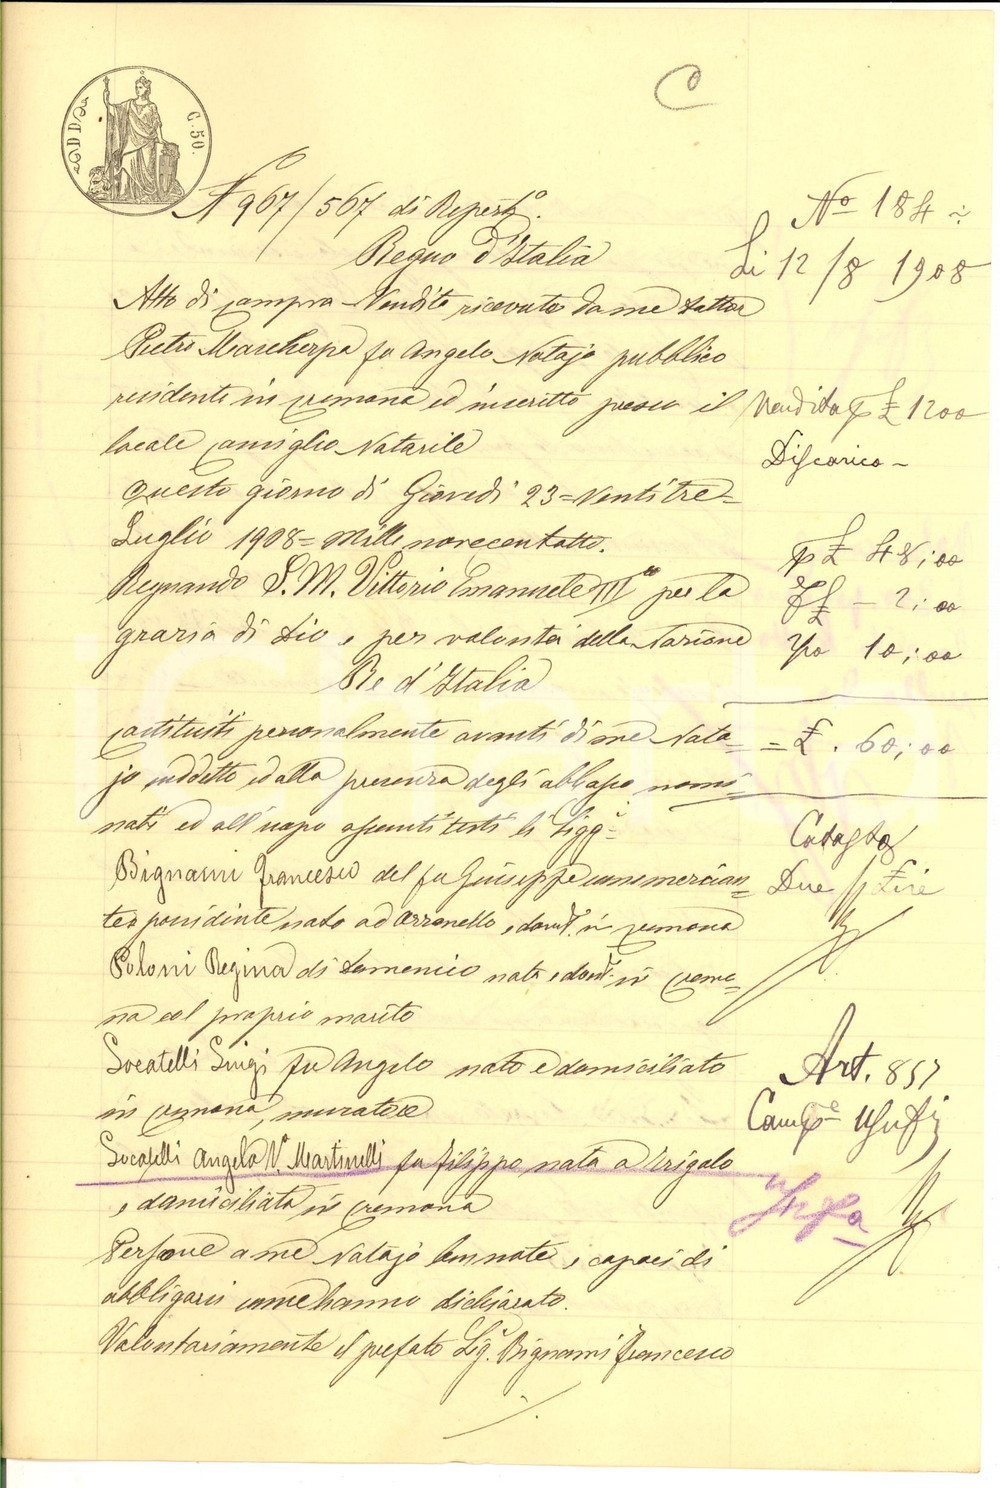 C
C. 50.
N° 967/567 di Repert°.
Regno d'Italia
Atto di compra-Vendita ricevuto da me dottor
Pietro Mascherpa fu Angelo Notajo pubblico
residente in Cremona ed inscritto presso il
locale Consiglio Notarile
Questo giorno di Giovedì 23= Ventitre=
Luglio 1908= Mille novecentotto.
Regnando S. M. Vittorio Emanuele III° per la
grazia di Dio e per volontà della Nazione
Re d'Italia
Costituiti personalmente avanti di me Nota=
jo suddetto ed alla presenza degli abbasso nomi=
nati ed all'uopo assunti testi li Sigg.i
Bignami Francesco del fu Giuseppe commercian=
te possidente nato ad Azzanello, e dom.to in Cremona
Poloni Regina di Domenico nata e dom.ta in Cremo=
na col proprio marito
Locatelli Luigi fu Angelo nato e domiciliato
in Cremona, muratore
Locatelli Angela V.a Martinelli fu Filippo nata a Trigolo
e domiciliata in Cremona
Persone a me Notajo bennote, e capaci di
obbligarsi come hanno dichiarato.
Volontariamente il prefato Sig. Bignami Francesco
N° 184
Li 12/8 1908
Vendita p £ 1200
Discarico -
p £ 48,:00
£ - 2:00
10,:00
= £. 60,:00
Catasto
Due Lire
Art. 857